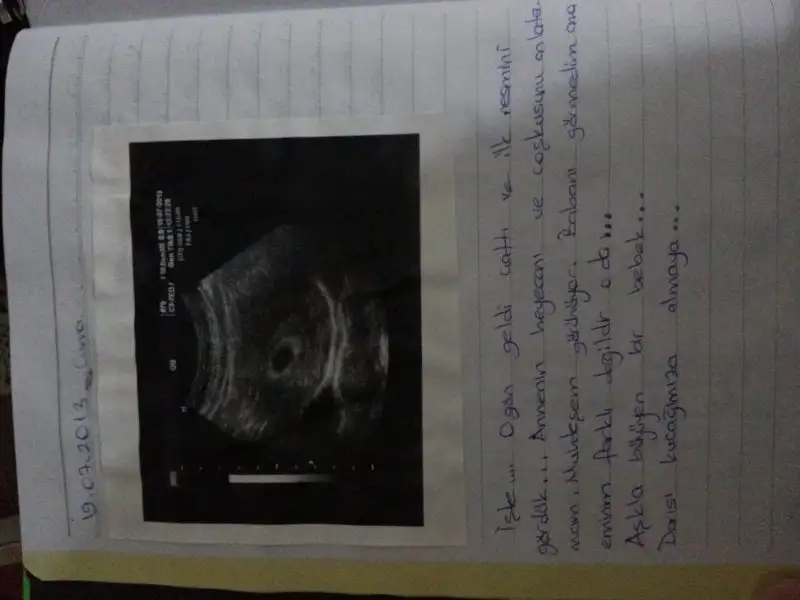 19.07.2013 Cuma
İşte.... O gün geldi çattı ve ilk resmini
gördük... Annenin heyecanı ve coşkusunu anlata-
mam. Muhteşem görünüyor. Babanı görmedim ama
eminim farklı değildir o da...
Aşkla büyüyen bir bebek...
Darısı kucağımıza almaya...